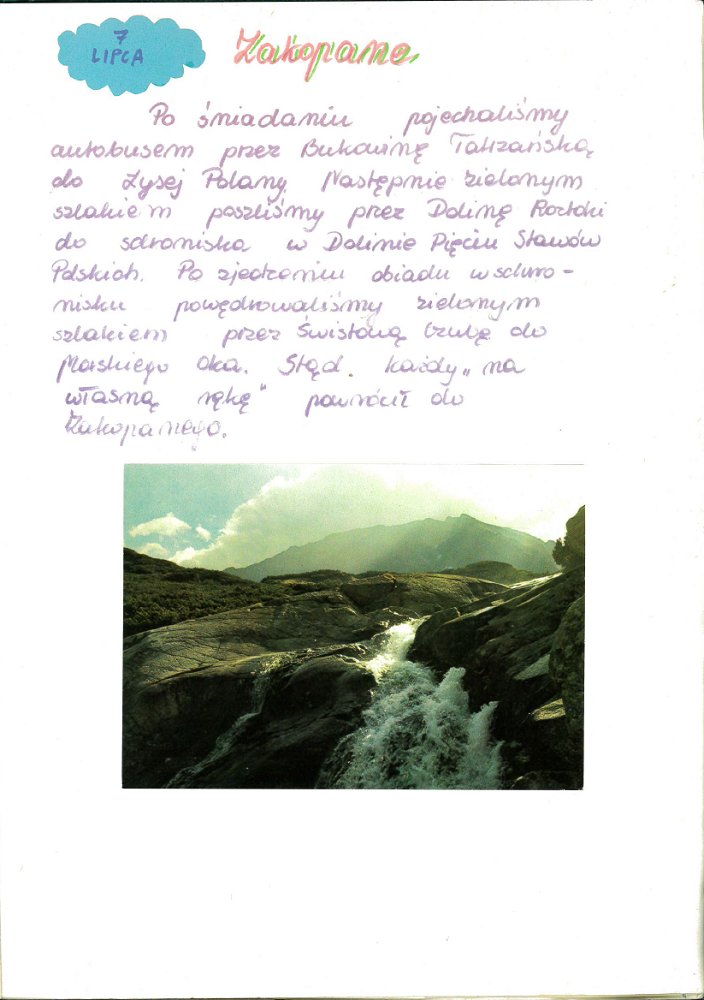 7
LIPCA
Zakopane
Po śniadaniu pojechaliśmy
autobusem przez Bukowinę Tatrzańską
do Łysej Polany. Następnie zielonym
szlakiem poszliśmy przez Dolinę Roztoki
do schroniska w Dolinie Pięciu Stawów
Polskich. Po zjedzeniu obiadu w schro-
nisku powędrowaliśmy zielonym
szlakiem przez Świstową Czubę do
Morskiego Oka. Stąd. każdy „na
własną rękę" powrócił do
Zakopanego.